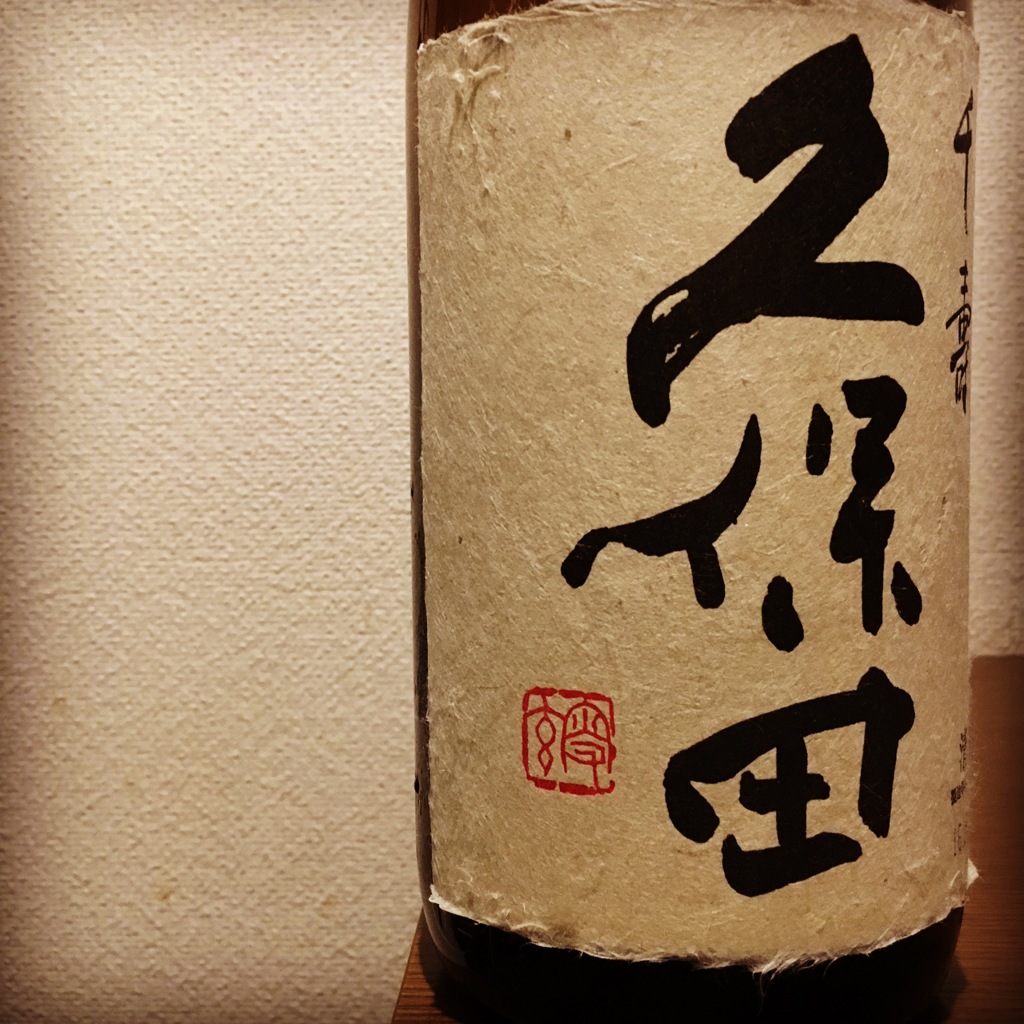 千寿
久保田